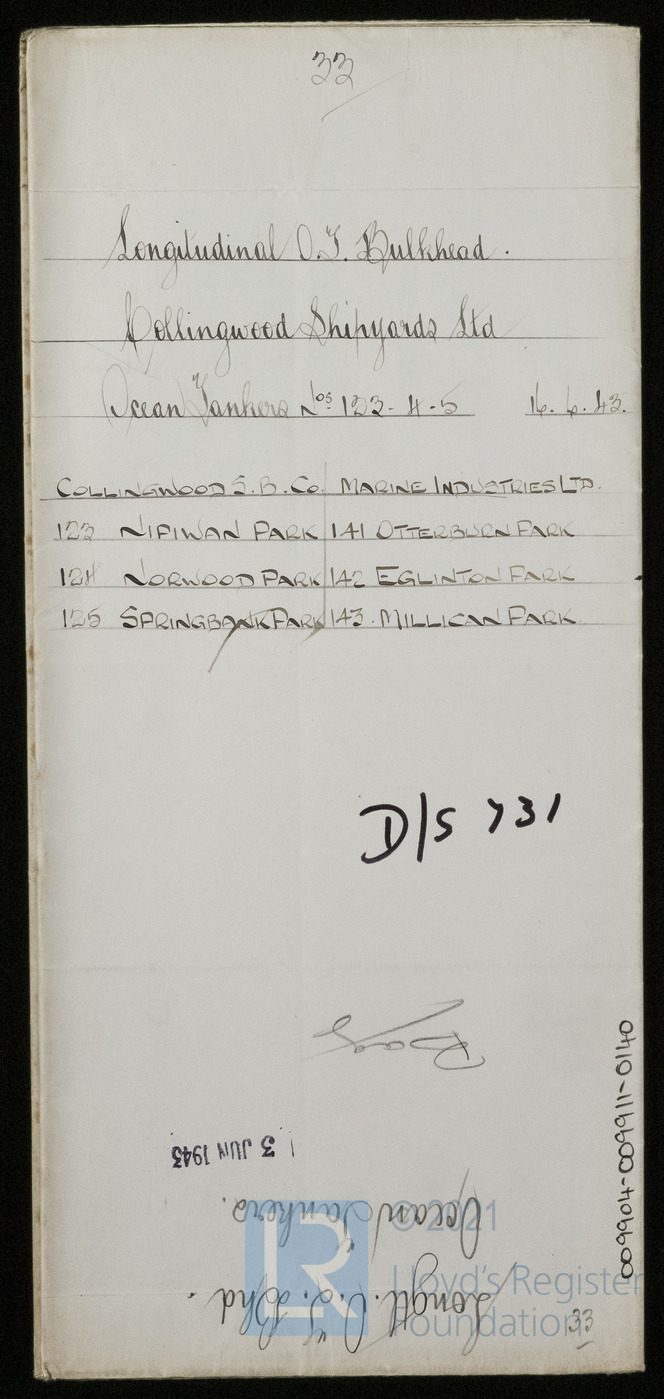 33
Longitudinal O.T. Bulkhead.
Collingwood Shipyards Ltd
Ocean Tankers Nos 123-4-5 16.6.43.
COLLINGWOOD S.B.Co. MARINE INDUSTRIES LTD.
123 NIPIWAN PARK 141 OTTERBURN PARK
124 NORWOOD PARK 142 EGLINTON PARK
125 SPRINGBANK PARK 143. MILLICAN PARK
D/S 731
3 JUN 1943
Ocean Tankers.
Longtl. O.T. Bhd.
33
009904-009911-0140
LR
© 2021
Lloyd's Register
Foundation